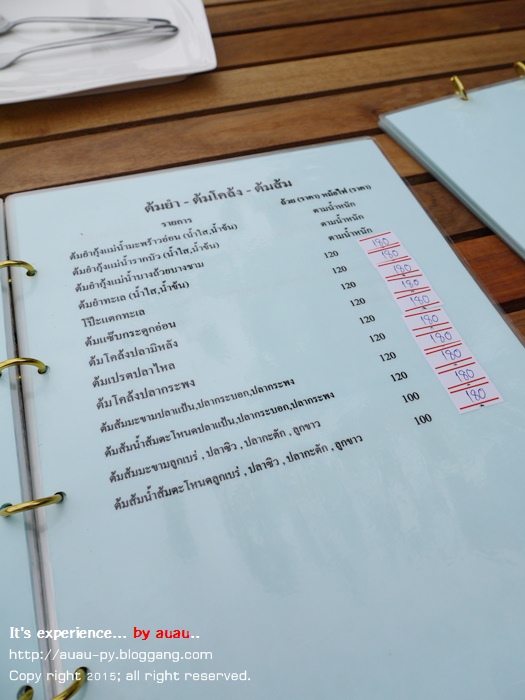 ต้มยำ - ต้มโคล้ง - ต้มส้ม
รายการ ถ้วย (ราคา) หม้อไฟ (ราคา)
ต้มยำกุ้งแม่น้ำมะพร้าวอ่อน (น้ำใส,น้ำข้น) ตามน้ำหนัก
ต้มยำกุ้งแม่น้ำรากบัว (น้ำใส,น้ำข้น) ตามน้ำหนัก
ต้มยำกุ้งแม่น้ำบางถ้วยบางชาม ตามน้ำหนัก
ต้มยำทะเล (น้ำใส,น้ำข้น) 120 180
โป๊ะแตกทะเล 120 180
ต้มแซ๊บกระดูกอ่อน 120 180
ต้มโคล้งปลามิหลัง 120 180
ต้มเปรตปลาไหล 120 180
ต้มโคล้งปลากระพง 120 180
ต้มส้มมะขามปลาแป้น,ปลากระบอก,ปลากระพง 120 180
ต้มส้มน้ำส้มตะโหนดปลาแป้น,ปลากระบอก,ปลากระพง 120 180
ต้มส้มมะขามลูกเบร่ , ปลาซิว , ปลากะตัก , ลูกขาว 100 180
ต้มส้มน้ำส้มตะโหนดลูกเบร่ , ปลาซิว , ปลากะตัก , ลูกขาว 100 180
It's experience... by auau..
http://auau-py.bloggang.com
Copy right 2015; all right reserved.